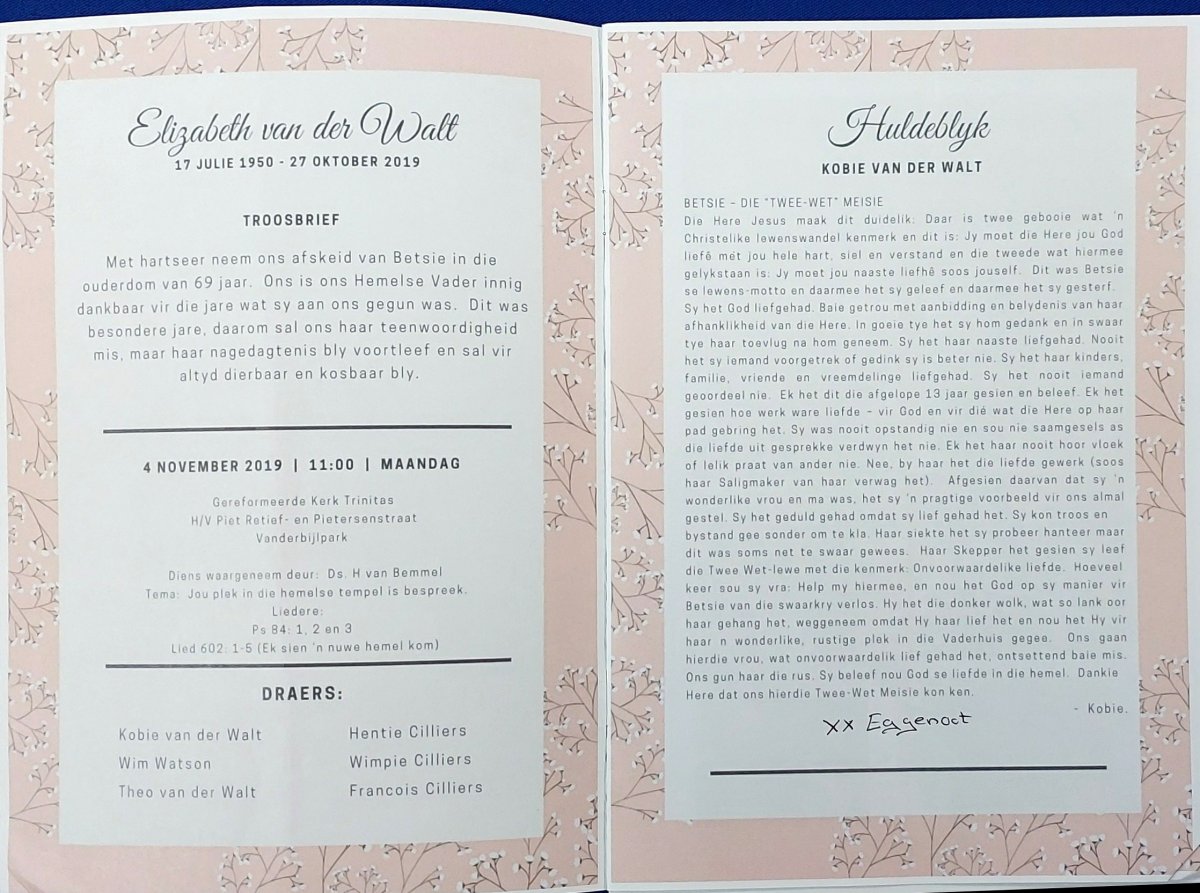 Elizabeth van der Walt
17 JULIE 1950 - 27 OKTOBER 2019
TROOSBRIEF
Met hartseer neem ons afskeid van Betsie in die
ouderdom van 69 jaar. Ons is ons Hemelse Vader innig
dankbaar vir die jare wat sy aan ons gegun was. Dit was
besondere jare, daarom sal ons haar teenwoordigheid
mis, maar haar nagedagtenis bly voortleef en sal vir
altyd dierbaar en kosbaar bly.
4 NOVEMBER 2019 | 11:00 | MAANDAG
Gereformeerde Kerk Trinitas
H/V Piet Retief- en Pietersenstraat
Vanderbijlpark
Diens waargeneem deur: Ds. H van Bemmel
Tema: Jou plek in die hemelse tempel is bespreek.
Liedere:
Ps 84: 1, 2 en 3
Lied 602: 1-5 (Ek sien 'n nuwe hemel kom)
DRAERS:
Kobie van der Walt
Wim Watson
Theo van der Walt
Hentie Cilliers
Wimpie Cilliers
Francois Cilliers
Huldeblyk
KOBIE VAN DER WALT
BETSIE - DIE "TWEE-WET" MEISIE
Die Here Jesus maak dit duidelik: Daar is twee gebooie wat 'n
Christelike lewenswandel kenmerk en dit is: Jy moet die Here jou God
liefê met jou hele hart, siel en verstand en die tweede wat hiermee
gelykstaan is: Jy moet jou naaste liefhê soos jouself. Dit was Betsie
se lewens-motto en daarmee het sy geleef en daarmee het sy gesterf.
Sy het God liefgehad. Baie getrou met aanbidding en belydenis van haar
afhanklikheid van die Here. In goeie tye het sy hom gedank en in swaar
tye haar toevlug na hom geneem. Sy het haar naaste liefgehad. Nooit
het sy iemand voorgetrek of gedink sy is beter nie. Sy het haar kinders,
familie, vriende en vreemdelinge liefgehad. Sy het nooit iemand
geoordeel nie. Ek het dit die afgelope 13 jaar gesien en beleef. Ek het
gesien hoe werk ware liefde - vir God en vir dié wat die Here op haar
pad gebring het. Sy was nooit opstandig nie en sou nie saamgesels as
die liefde uit gesprekke verdwyn het nie. Ek het haar nooit hoor vloek
of lelik praat van ander nie. Nee, by haar het die liefde gewerk (soos
haar Saligmaker van haar verwag het). Afgesien daarvan dat sy 'n
wonderlike vrou en ma was, het sy 'n pragtige voorbeeld vir ons almal
gestel. Sy het geduld gehad omdat sy lief gehad het. Sy kon troos en
bystand gee sonder om te kla. Haar siekte het sy probeer hanteer maar
dit was soms net te swaar gewees. Haar Skepper het gesien sy leef
die Twee Wet-lewe met die kenmerk: Onvoorwaardelike liefde. Hoeveel
keer sou sy vra: Help my hiermee, en nou het God op sy manier vir
Betsie van die swaarkry verlos. Hy het die donker wolk, wat so lank oor
haar gehang het, weggeneem omdat Hy haar lief het en nou het Hy vir
haar n wonderlike, rustige plek in die Vaderhuis gegee. Ons gaan
hierdie vrou, wat onvoorwaardelik lief gehad het, ontsettend baie mis.
Ons gun haar die rus. Sy beleef nou God se liefde in die hemel. Dankie
Here dat ons hierdie Twee-Wet Meisie kon ken.
- Kobie.
xx Eggenoot